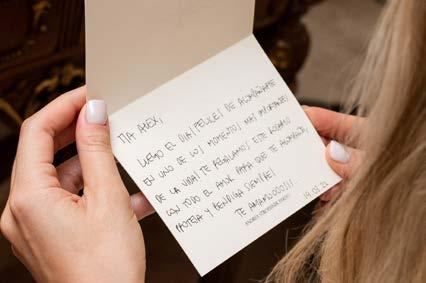 TIA ALEX,
LLEGO EL DIA! FELICES DE ACOMPAÑARTE
EN UNO DE LOS MOMENTOS MAS IMPORTANTES
DE LA VIDA! TE REGALAMOS ESTE ROSARIO
CON TODO EL AMOR PARA QUE TE ACOMPAÑE,
PROTEJA Y BENDIGA SIEMPRE!
TE AMAMOOOO!!!
19.07.24